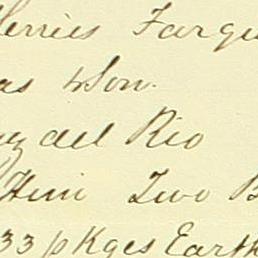 Herries Farqu
as & Son.
del Rio
Him Two B
33 pKges Earth